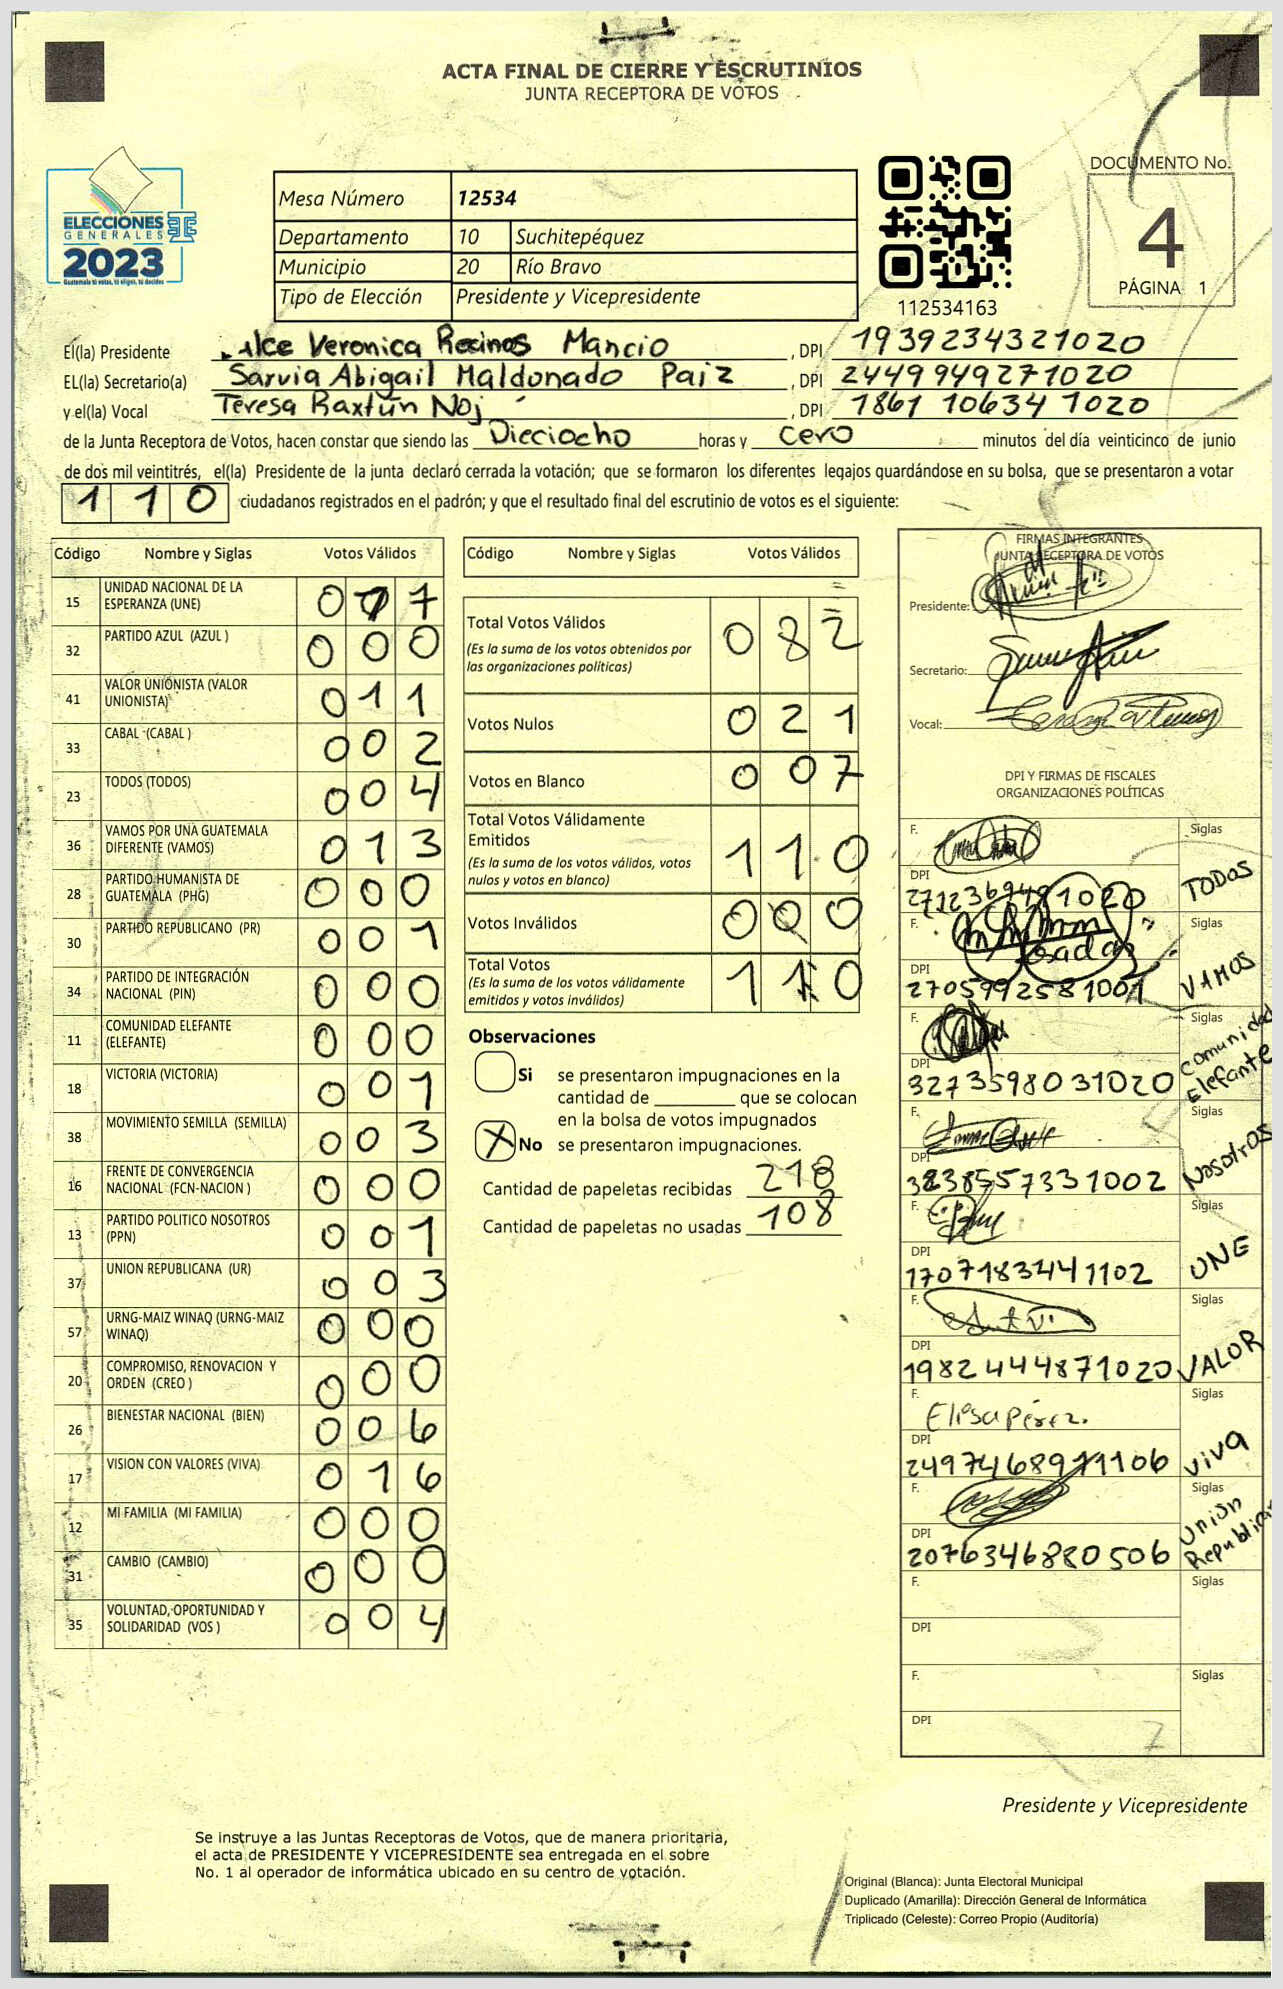 ACTA FINAL DE CIERRE Y ESCRUTINIOS
JUNTA RECEPTORA DE VOTOS
ELECCIONES
GENERALES
2023
Guatemala tú votas, tú eliges, tú decides
Mesa Número 12534
Departamento 10 Suchitepéquez
Municipio 20 Río Bravo
Tipo de Elección Presidente y Vicepresidente
112534163
DOCUMENTO No.
4
PÁGINA 1
El(la) Presidente Veronica Recinos Mancio , DPI 1939234321020
EL(la) Secretario(a) Sarvia Abigail Maldonado Paiz , DPI 2449949271020
y el(la) Vocal Teresa Raxtún Noj , DPI 1861 10634 1020
de la Junta Receptora de Votos, hacen constar que siendo las Dieciocho horas y cero minutos del día veinticinco de junio
de dos mil veintitrés, el(la) Presidente de la junta declaró cerrada la votación; que se formaron los diferentes legajos guardándose en su bolsa, que se presentaron a votar
110 ciudadanos registrados en el padrón; y que el resultado final del escrutinio de votos es el siguiente:
Código Nombre y Siglas Votos Válidos
15 UNIDAD NACIONAL DE LA ESPERANZA (UNE) 017
32 PARTIDO AZUL (AZUL ) 000
41 VALOR UNIONISTA (VALOR UNIONISTA) 011
33 CABAL (CABAL ) 002
23 TODOS (TODOS) 004
36 VAMOS POR UNA GUATEMALA DIFERENTE (VAMOS) 013
28 PARTIDO HUMANISTA DE GUATEMALA (PHG) 000
30 PARTIDO REPUBLICANO (PR) 001
34 PARTIDO DE INTEGRACIÓN NACIONAL (PIN) 000
11 COMUNIDAD ELEFANTE (ELEFANTE) 000
18 VICTORIA (VICTORIA) 001
38 MOVIMIENTO SEMILLA (SEMILLA) 003
16 FRENTE DE CONVERGENCIA NACIONAL (FCN-NACION ) 000
13 PARTIDO POLITICO NOSOTROS (PPN) 001
37 UNION REPUBLICANA (UR) 003
57 URNG-MAIZ WINAQ (URNG-MAIZ WINAQ) 000
20 COMPROMISO, RENOVACION Y ORDEN (CREO ) 000
26 BIENESTAR NACIONAL (BIEN) 006
17 VISION CON VALORES (VIVA) 016
12 MI FAMILIA (MI FAMILIA) 000
31 CAMBIO (CAMBIO) 000
35 VOLUNTAD, OPORTUNIDAD Y SOLIDARIDAD (VOS ) 004
Código Nombre y Siglas Votos Válidos
Total Votos Válidos 082
(Es la suma de los votos obtenidos por
las organizaciones políticas)
Votos Nulos 021
Votos en Blanco 007
Total Votos Válidamente
Emitidos 110
(Es la suma de los votos válidos, votos
nulos y votos en blanco)
Votos Inválidos 000
Total Votos 110
(Es la suma de los votos válidamente
emitidos y votos inválidos)
Observaciones
Si se presentaron impugnaciones en la
cantidad de ________ que se colocan
en la bolsa de votos impugnados
X No se presentaron impugnaciones.
Cantidad de papeletas recibidas 218
Cantidad de papeletas no usadas 108
FIRMAS INTEGRANTES
JUNTA RECEPTORA DE VOTOS
Presidente:
Secretario:
Vocal:
DPI Y FIRMAS DE FISCALES
ORGANIZACIONES POLÍTICAS
F. Siglas
DPI TODOS
F. Siglas
DPI
2705992581001 VAMOS
F. Siglas
DPI
3273598031020 Comunidad Elefante
F. Siglas
DPI
Nosotros
F. Siglas
DPI
1707183441102 UNE
F. Siglas
DPI
1982444871020 VALOR
F. Elisa Pérez. Siglas
DPI
viva
F. Siglas
DPI
2076346880506 Unión
F. Siglas
DPI
F. Siglas
DPI
Presidente y Vicepresidente
Se instruye a las Juntas Receptoras de Votos, que de manera prioritaria,
el acta de PRESIDENTE Y VICEPRESIDENTE sea entregada en el sobre
No. 1 al operador de informática ubicado en su centro de votación.
Original (Blanca): Junta Electoral Municipal
Duplicado (Amarilla): Dirección General de Informática
Triplicado (Celeste): Correo Propio (Auditoría)